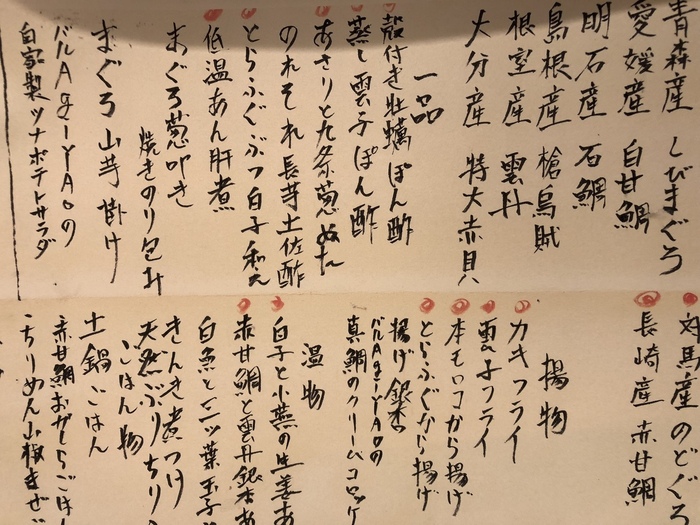 青森産 しびまぐろ
愛媛産 白甘鯛
明石産 石鯛
島根産 槍烏賊
根室産 雲丹
大分産 特大赤貝
一品
殻付き牡蠣ぽん酢
蒸し雲子ぽん酢
あさりと九条葱ぬた
のれそれ長芋土佐酢
とらふぐぶつ白子和え
低温あん肝煮
まぐろ葱叩き
焼きのり包み
まぐろ山芋掛け
バルAgiyAoの
自家製ツナポテトサラダ
対馬産のどぐろ
長崎産 赤甘鯛
揚物
カキフライ
雲子フライ
本モロコから揚げ
とらふぐから揚げ
揚げ銀杏
バルAgiyAoの
真鯛のクリームコロッケ
温物
白子と小蕪の生姜あ
赤甘鯛と雲丹銀杏あ
白魚と三ツ葉玉子
きんき煮つけ
天然ぶりちり
ごはん物
土鍋ごはん
赤甘鯛おからごはん
ちりめん山椒まぜご